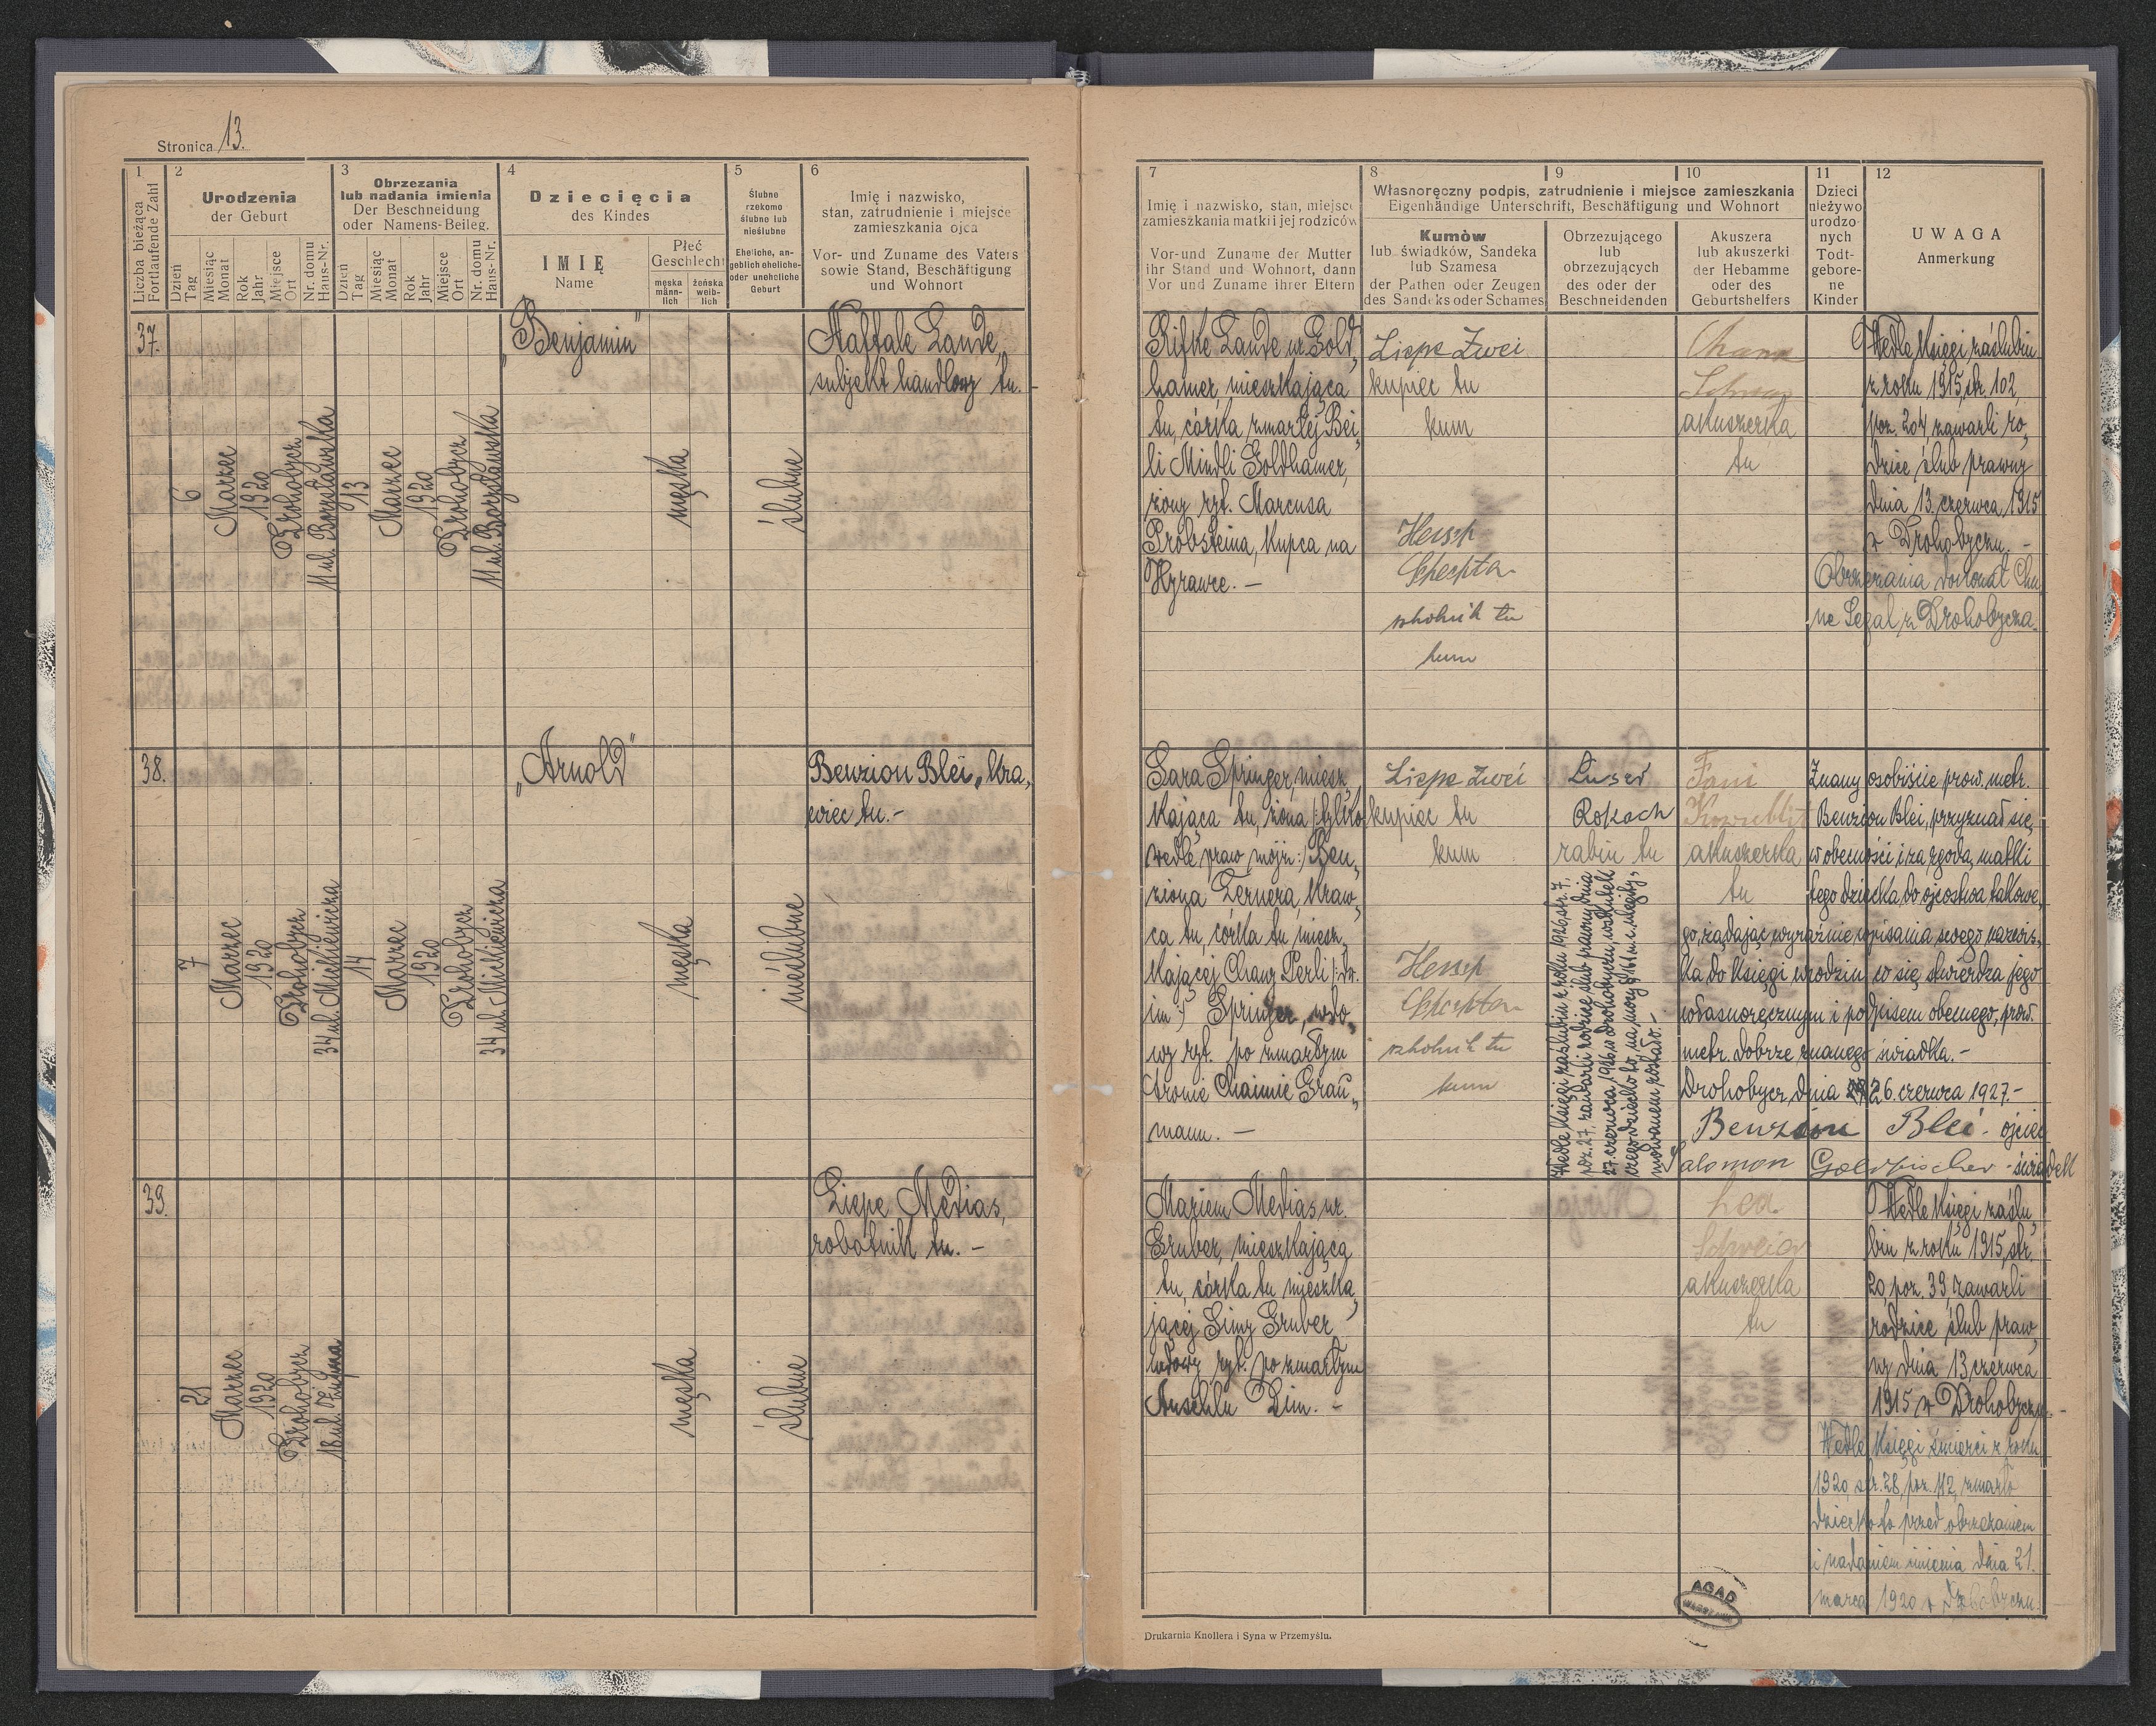 Stronica 13.
1
Liczba bieżąca
Fortlaufende Zahl
2
Urodzenia
der Geburt
Dzień
Tag
Miesiąc
Monat
Rok
Jahr
Miejsce
Ort
Nr. domu
Haus-Nr.
3
Obrzezania
lub nadania imienia
Der Beschneidung
oder Namens-Beileg.
Dzień
Tag
Miesiąc
Monat
Rok
Jahr
Miejsce
Ort
Nr. domu
Haus-Nr.
4
Dziecięcia
des Kindes
IMIĘ
Name
Płeć
Geschlecht
męska
männ-
lich
żeńska
weib-
lich
5
Ślubne
rzekomo
ślubne lub
nieślubne
Eheliche, an-
geblich eheliche-
oder uneheliche
Geburt
6
Imię i nazwisko,
stan, zatrudnienie i miejsce
zamieszkania ojca
Vor- und Zuname des Vaters
sowie Stand, Beschäftigung
und Wohnort
7
Imię i nazwisko, stan, miejsce
zamieszkania matki i jej rodziców
Vor-und Zuname der Mutter
ihr Stand und Wohnort, dann
Vor und Zuname ihrer Eltern
8
9
10
Własnoręczny podpis, zatrudnienie i miejsce zamieszkania
Eigenhändige Unterschrift, Beschäftigung und Wohnort
Kumów
lub świadków, Sandeka
lub Szamesa
der Pathen oder Zeugen
des Sandeks oder Schames
Obrzezującego
lub
obrzezujących
des oder der
Beschneidenden
Akuszera
lub akuszerki
der Hebamme
oder des
Geburtshelfers
11
Dzieci
nieżywo
urodzo-
nych
Todt-
gebore-
ne
Kinder
12
UWAGA
Anmerkung
37.
6
Marzec
1920
Drohobycz
11 ul. Borysławska
13
Marzec
1920
Drohobycz
11 ul. Borysławska
„Benjamin"
męska
ślubne
Naftale Lande,
subjekt handlowy tu.-
Rifke Lande ur. Gold„
hamer, mieszkająca
tu, córka zmarłej Bei„
li Mindli Goldhamer,
żony ryt. Marcusa
Probsteina, kupca na
Hyrawce. -
Liepe Zwei
kupiec tu
kum
Hersch
Schechter
szkolnik tu
kum
Chana
akuszerka
tu
Wedle księgi zaślubin
z roku 1915, str. 102,
poz. 204, zawarli ro„
dzice ślub prawny
dnia 13. czerwca 1915
w Drohobyczu. -
Obrzezania dokonał Chu
ne Segal z Drohobycza.
38.
7
Marzec
1920
Drohobycz
34 ul. Mickiewicza
14
Marzec
1920
Drohobycz
34 ul. Mickiewicza
„Arnold"
męska
nieślubne
Benzion Blei, kra„
wiec tu.-
Sara Springer, miesz„
kająca tu, żona /: tylko
wedle praw mojż:/ Ben„
ziona Lernera, kraw„
ca tu, córka tu miesz„
kającej Chany Perli /: dw.
im :/ Springer, wdo„
wy ryt. po zmarłym
Aronie Chaimie Grau„
mann. -
Liepe Zwei
kupiec tu
kum
Hersch
Schechter
szkolnik tu
kum
Luser
Rokach
rabin tu
Wedle księgi zaślubin z roku 1926, str. 7,
poz. 27. zawarli rodzice ślub prawny dnia
27. czerwca 1926 w Drohobyczu, wskutek
czego dziecko to, na mocy §. 161 u. c. u legity„
mowanem zostało. -
Fani
akuszerka
tu
Znany osobiście prow. metr.
Benzion Blei, przyznał się
w obecności i za zgodą matki
tego dziecka, do ojcostwa takowe„
go, żądając wyraźnie wpisania swego nazwis„
ka do księgi urodzin, co się stwierdza jego
własnoręcznym i podpisem obecnego, prow.
metr. dobrze znanego świadka. -
Drohobycz, dnia 26. czerwca 1927. -
Benzion Blei - ojciec
Salomon Goldfischer - świadek
39.
21
Marzec
1920
Drohobycz
18 ul. Żupna
męska
ślubne
Liepe Medias,
robotnik tu. -
Mariem Medias ur.
Gruber, mieszkająca
tu, córka tu mieszka„
jącej Simy Gruber
wdowy ryt. po zmarłym
Anschlu Lim. -
Lea
akuszerka
tu
Wedle księgi zaślu„
bin z roku 1915, str.
20, poz. 39, zawarli
rodzice ślub praw„
ny dnia 13 czerwca
1915 w Drohobyczu. -
Wedle księgi śmierci z roku
1920 str. 28, poz. 112, zmarło
dziecko to przed obrzezaniem
i nadaniem imienia dnia 21.
marca 1920 w Drohobyczu.
AGAD
WARSZAWA
Drukarnia Knollera i Syna w Przemyślu.